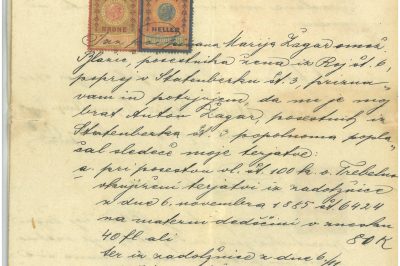 KRONE
HELLER
Jaz, Marija Žagar omož.
Plazic, posestnika žena iz Roj št. 6,
poprej v Statenberku št. 3, prizna-
vam in potrjujem, da mi je moj
brat Anton Žagar, posestnik iz
Statenberka št. 3 popolnoma popla-
čal sledeče moje terjatve:
a. pri posestvu vl. št. 100 k. o. Trebelno
vknjiženi terjatvi iz zadolžnice
z dne 6. novembra 1885 št. 6424
na materni dedščini v znesku
40 fl ali 80 K
ter iz zadolžnice z dne 6/11